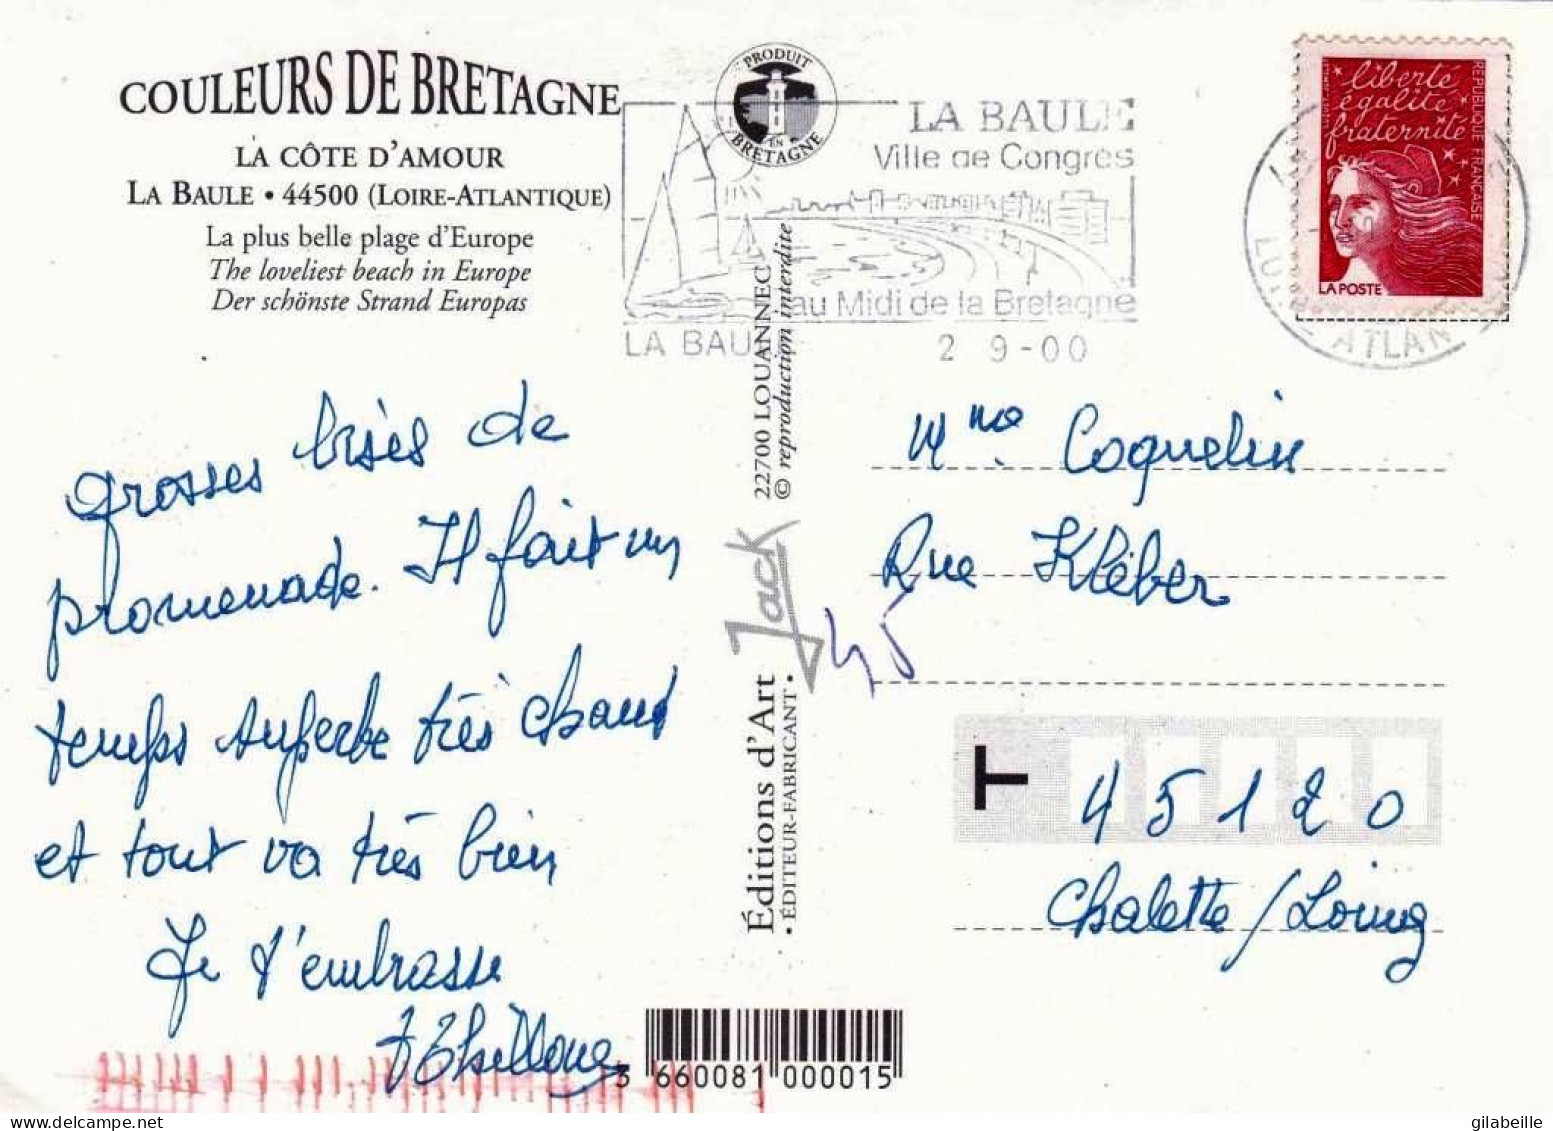 COULEURS DE BRETAGNE
LA CÔTE D'AMOUR
LA BAULE • 44500 (LOIRE-ATLANTIQUE)
La plus belle plage d'Europe
The loveliest beach in Europe
Der schönste Strand Europas
PRODUIT
EN
BRETAGNE
LA BAULE
Ville de Congrès
au Midi de la Bretagne
LA BAU
2 9-00
liberté
égalité
fraternité
REPUBLIQUE FRANÇAISE
LA POSTE
ATLAN
grosses bises de
promenade. Il fait un
temps superbe très chaud
et tout va très bien
Je t'embrasse
22700 LOUANNEC
© reproduction interdite
Jack
Éditions d'Art
• ÉDITEUR-FABRICANT •
Mme. Coquelin
Rue Kléber
45
T
45120
Chalette/Loing
3 660081 000015
gilabeille